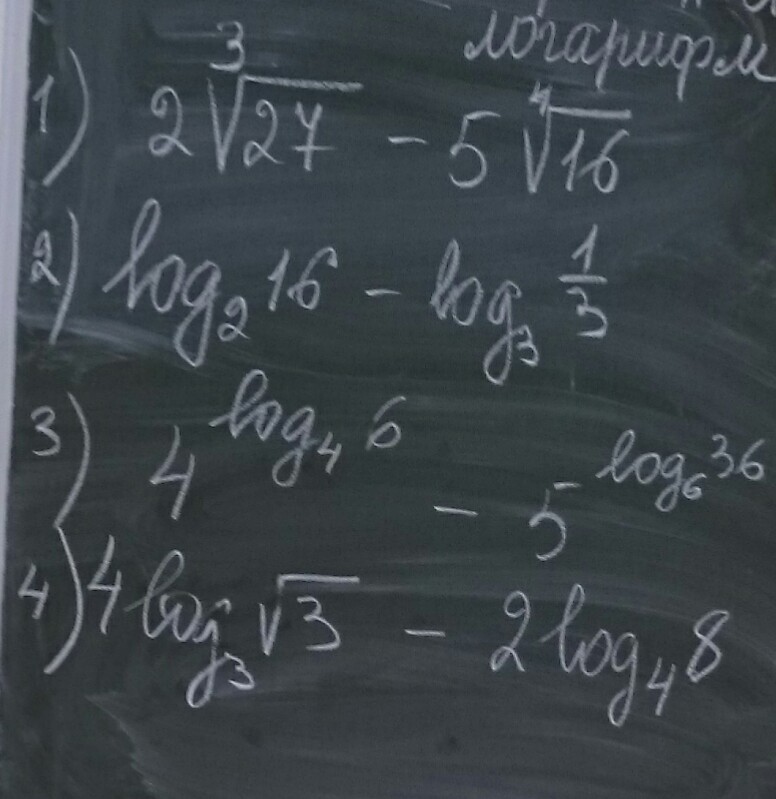 логарифм
1) 2∛27 - 5∜16
2) log₂ 16 - log₃ 1/3
3) 4^(log₄ 6) - 5^(log₆ 36)
4) 4 log₃ √3 - 2 log₄ 8